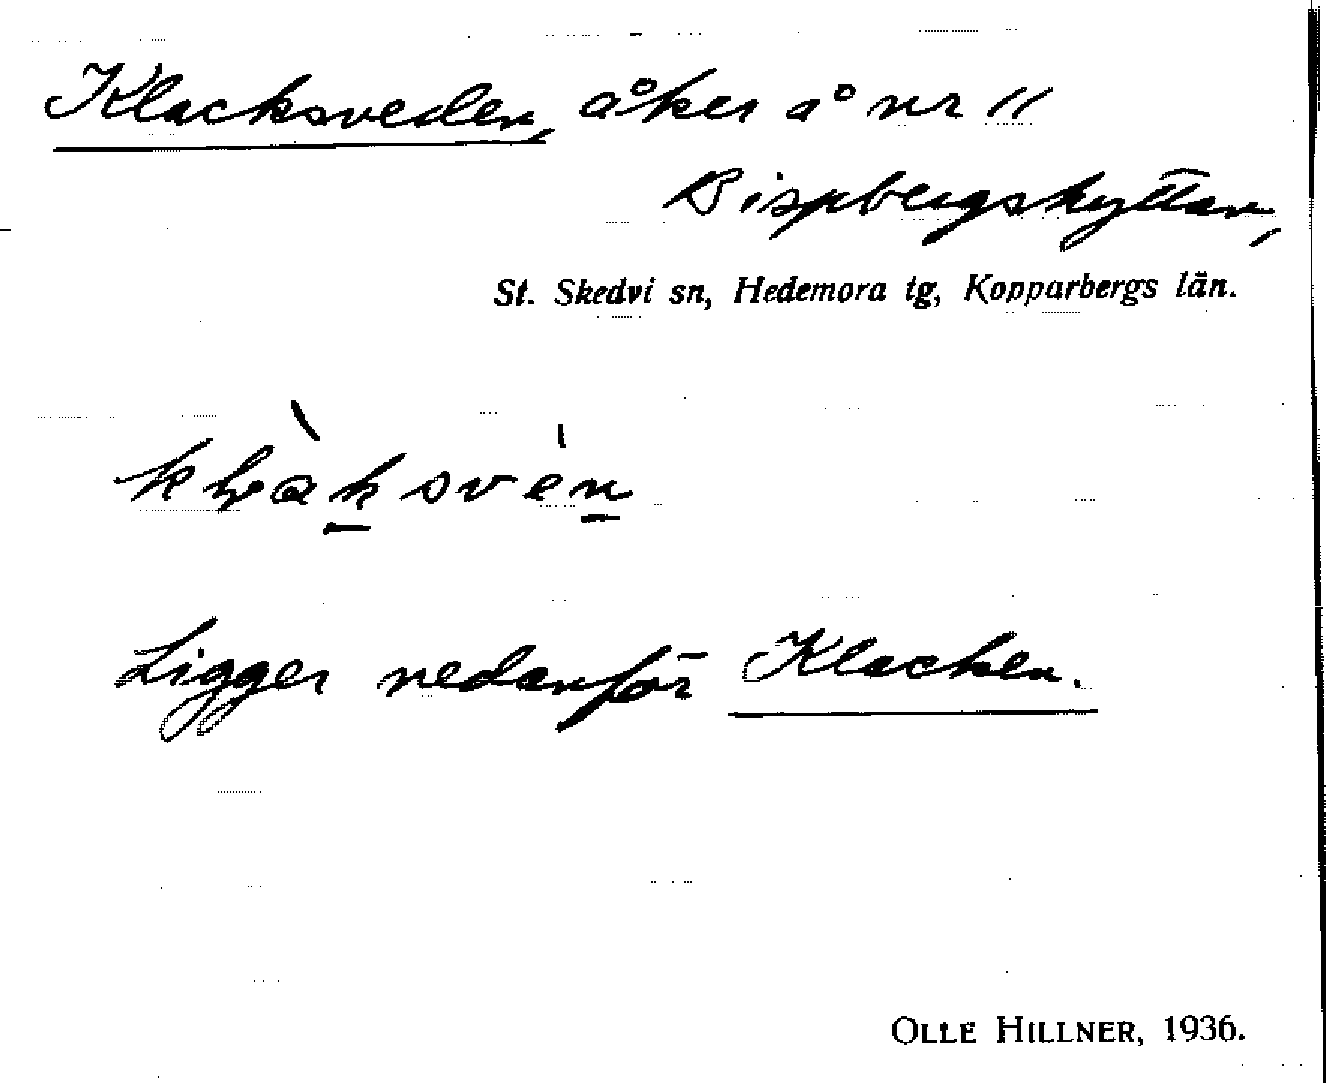 Klacksveden, åker å nr 11
Bispbergshyttan,
St. Skedvi sn, Hedemora tg, Kopparbergs län.
kḷàk̲svèn̲
Ligger nedanför Klacken.
OLLE HILLNER, 1936.